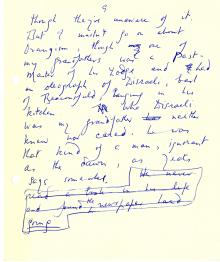 9
though they're unaware of it.
But I mustn't go on about
Orangeism, though one of
my grandfathers was a Past-
Master of his Lodge and had
an oleograph of Disraeli, Earl
of Beaconsfield, hanging in his
kitchen who Disraeli
was my grandfather neither
knew nor cared. He was
that kind of a man, ignorant
as the dawn, as Yeats
says somewhere. He never
read a book in his life
and found newspapers hard
going